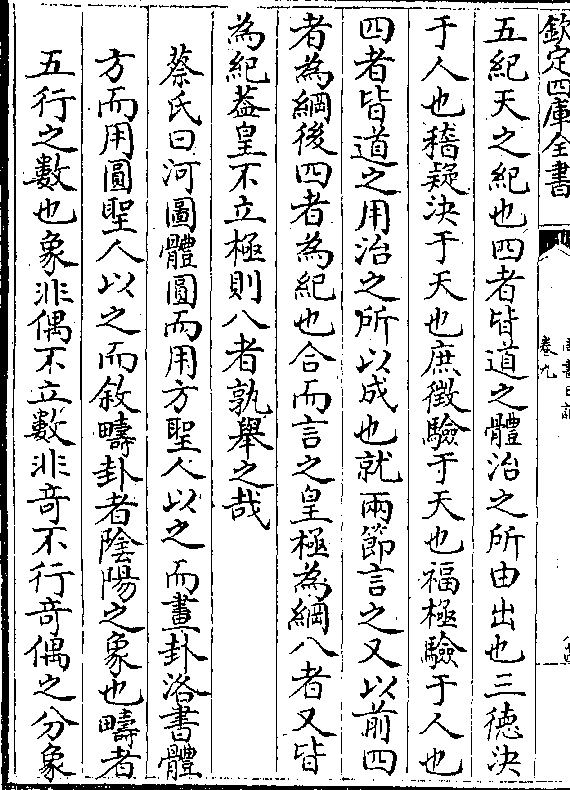 欽定四庫全書
卷九
五紀天之紀也四者皆道之體治之所由出也三徳決
于人也稽疑決于天也庶徵驗于天也福極驗于人也
四者皆道之用治之所以成也就兩節言之又以前四
者為綱後四者為紀也合而言之皇極為綱八者又皆
為紀葢皇不立極則八者孰舉之哉
蔡氏曰河圖體圓而用方聖人以之而畫卦洛書體
方而用圓聖人以之而敘疇卦者陰陽之象也疇者
五行之數也象非偶不立數非奇不行奇偶之分象